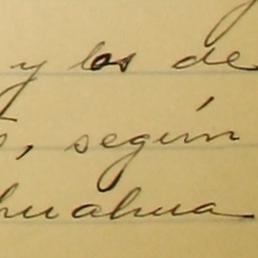 y los de
, según
huahua